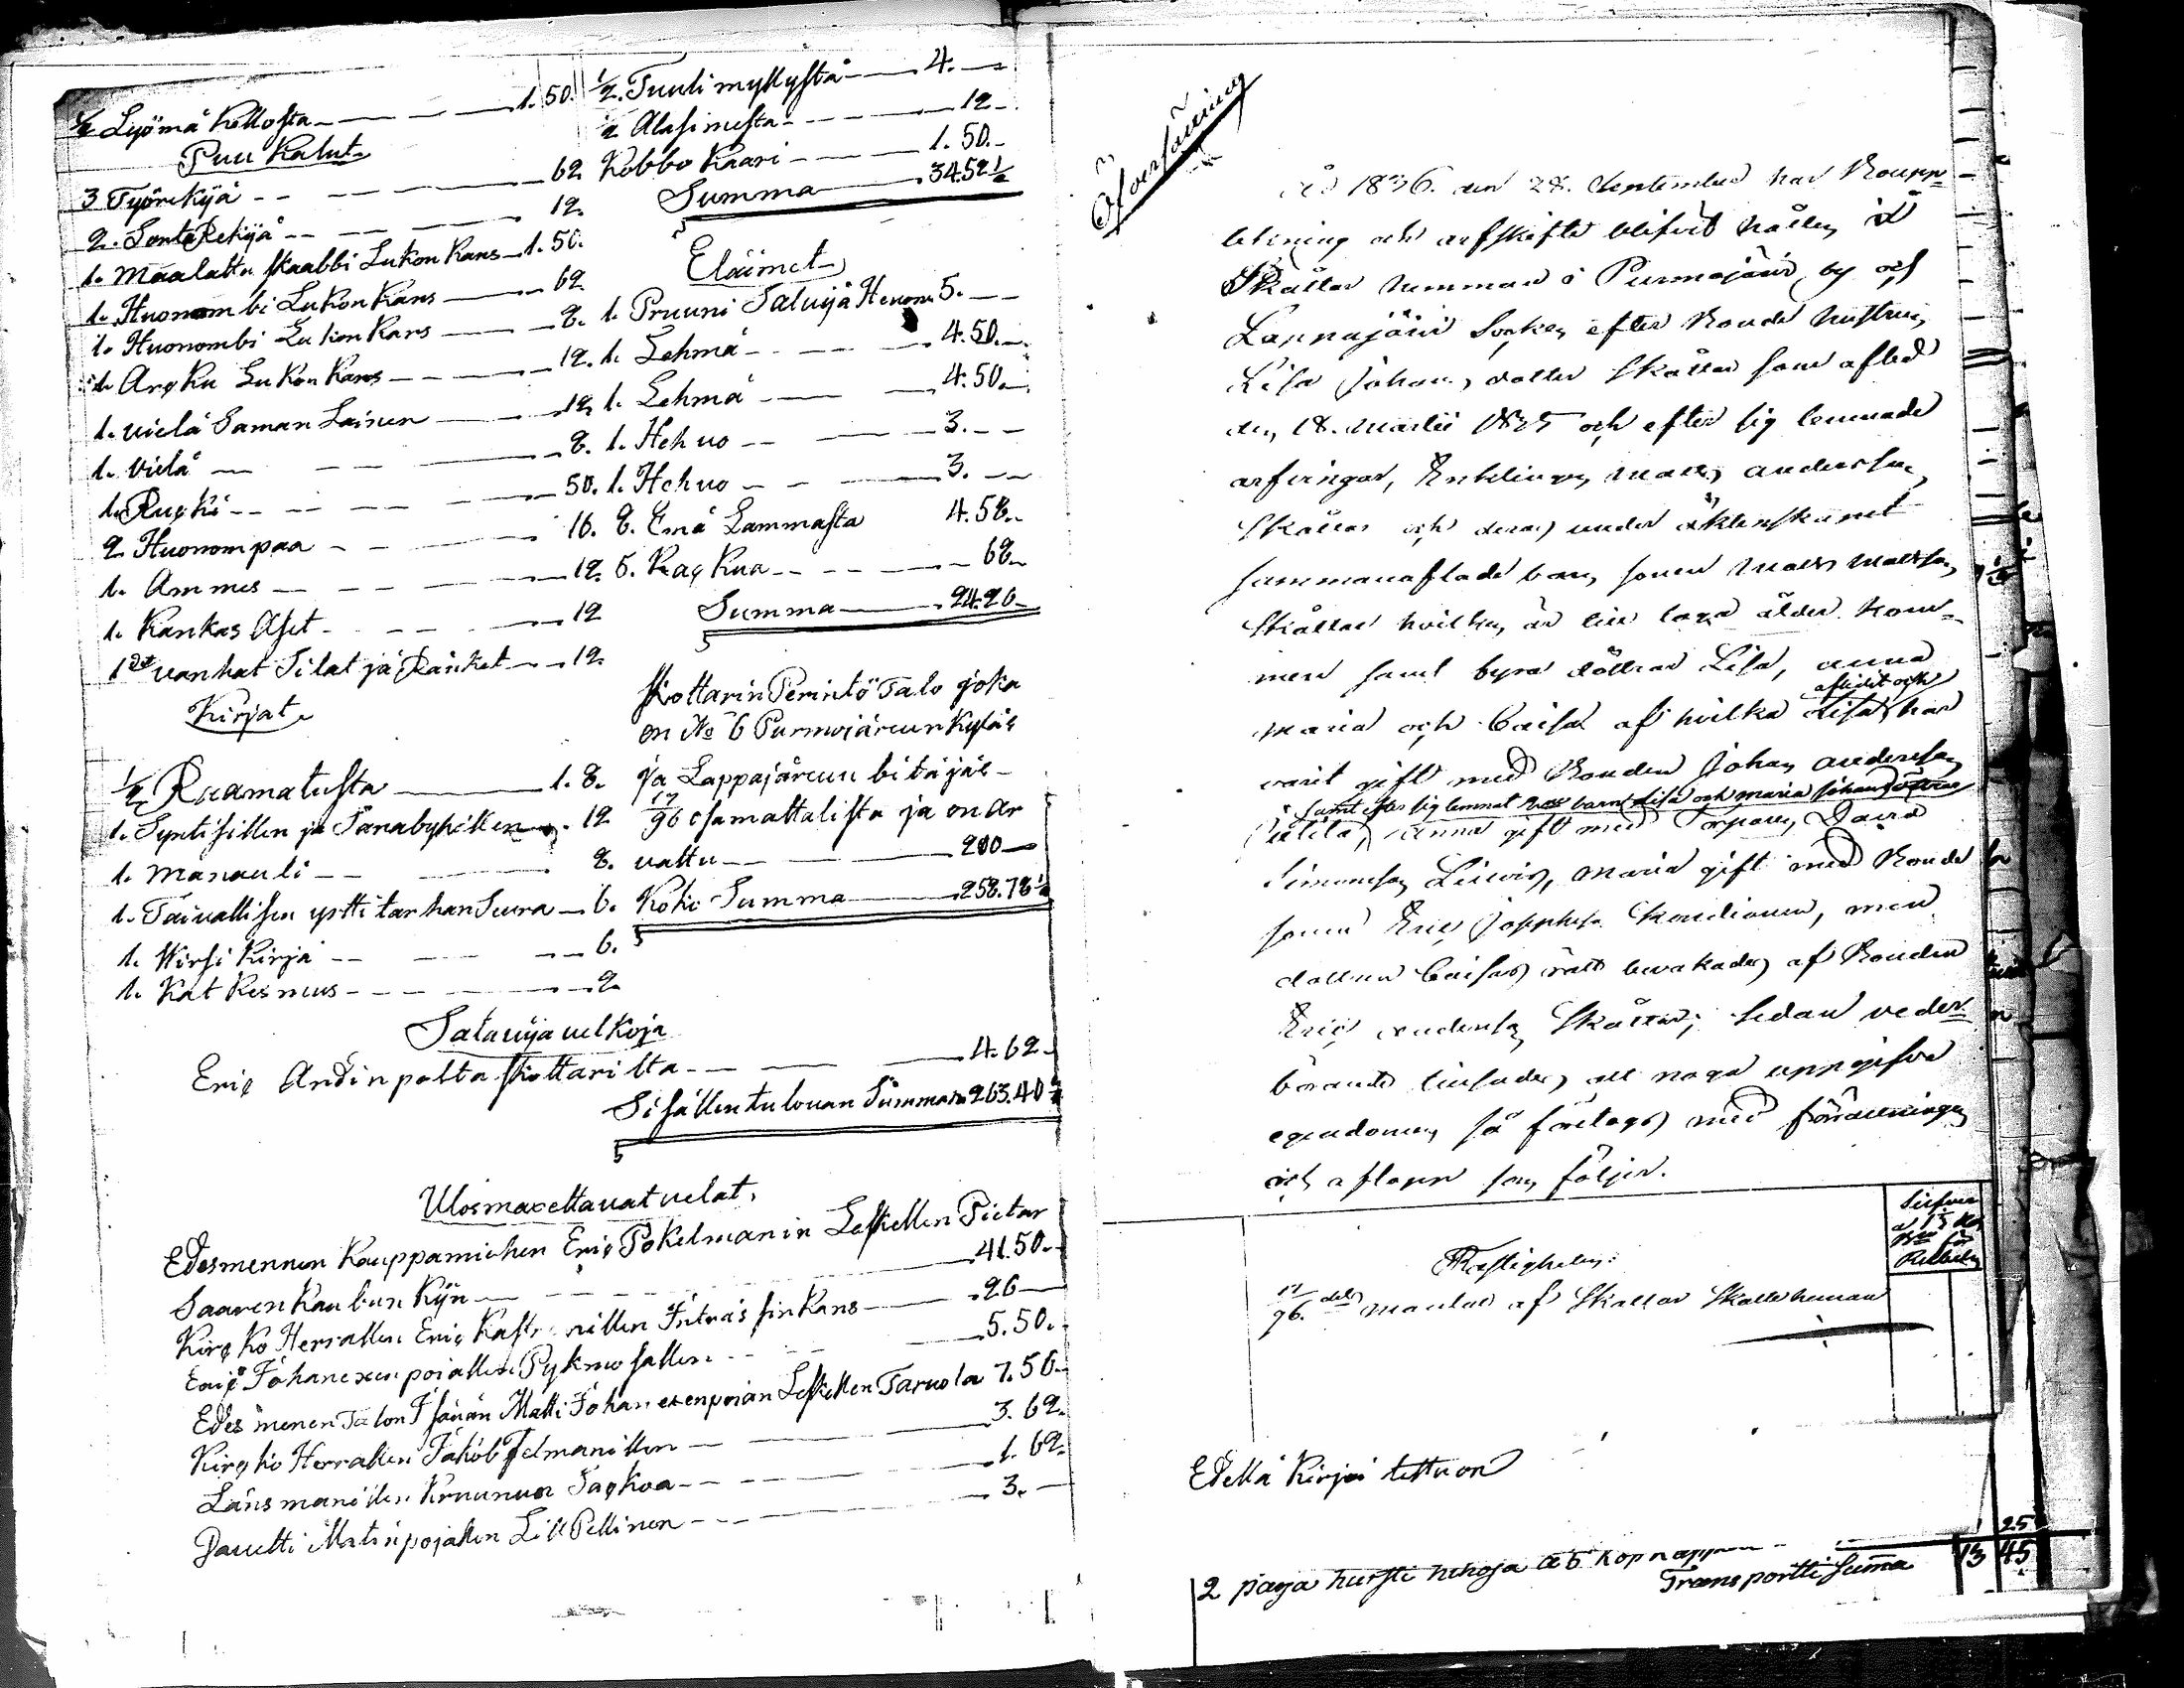 ½ Lyömä Kellosta 1.50.
Puu Kalut
3 Työrekijä 62
2. Sonta Rekijä 12.
1. Maalattu skaabbi Lukon Kans 1.50.
1. Huonombi Lukon Kans 62
1. Huonombi Lukon Kans 8.
1. Arꞔku Lukon Kans 12.
1. vielä Saman Lainen 12
1. vielä 8.
1. Ruꞔki 50.
2 Huonompaa 16.
1. Ammes 12.
1. Kankas Aset 12
1 vanhat Silat ja Ränket 12.
Kirjat
½ Raamatusta 1.8.
1. Syntisillen ja 12
1. Manauli 8.
1. Taivallisen yrttitarhan Seura 6.
1. Wirsi Kirja 6.
1. Kat Kesmus 2
½. Tuulimyllystä 4.
½ Alasimesta 12
Kobbo Kaari 1.50.
Summa 34.52½
Eläimet
1. Pruuni Taluija Hevonen 5.
1. Lehmä 4.50.
1. Lehmä 4.50.
1. Hehvo 3.
1. Hehvo 3.
8. Emä Lammasta 4.58.
5. Kaꞔkua 62
Summa 24.20
Skottarin Perintö Talo joka
on No 6 Purmojärvun Kyläs
ja Lappajärvun bitäjäs
17/96 osa mattalista ja on ar
vattu 200
Koko Summa 258.78½
Sataüja velkoja
Eriꞔ Andinpolta Skottarilta 4.62
Sisällentulovan Summan 263.40½
Ulosmaxettavat velat.
Edesmennen Kauppamiehen Eriꞔ Pokelmanin Leskellen Pietar
Saaren Kaubun Kÿn 41.50.
Kirꞔko Herrallen Eriꞔ Inträssin Kans 26
Eriꞔ Johanexen poiallen Pykmosallen 5.50.
Edesmenen Talon Isänän Matti Johanexenpoian Leskellen Taruola 7.50
Kirꞔko Herrallen Jakob Felmanillen 3.62.
Länsmanillen Kruunun Saꞔkoa 1.62.
Davetti Matinpojallen Lill Pellinen 3.
Öfversättning
År 1836. den 28. September har Boupp-
tekning och arfskifte blifvit hållen å
Skåttar hemman i Purmojärvi by och
Lappajärvi Socken efter Bonde hustrun
Lisa Johans dotter Skåttar som afled
den 18. Martii 1835 och efter sig lemnade
arfvingar, Enklingen Matts Andersson
Skåttar och deras under äktenskapet
sammanaflade barn, sonen Matts Mattsson
Skåttar hvilken är till laga ålder kom-
men samt fyra döttrar Lisa, Anna
Maria och Caisa af hvilka Lisa aflidit och har
varit gift med Bonden Johan Andersson
samt efter sig lemnat barn Lisa och Maria Johansdöttrar
Anna gift med Torparen David
Simonsson Maria gift med Bonde
sonen Eric men
dottren Caisas rätt bevakades af Bonden
Eric Andersson Skåttar; Sedan veder-
börande tilsades, att noga uppgifva
egendomen, så företogs med förrättningen
och aflopp som följer.
Silfver
Fastigheten:
17/96. dels mantal af Skattar Skatte heman
Edellä Kirjoi tettu on
25
2 paria hursti nihoja a 5 kop
Transportti Suma 13 45